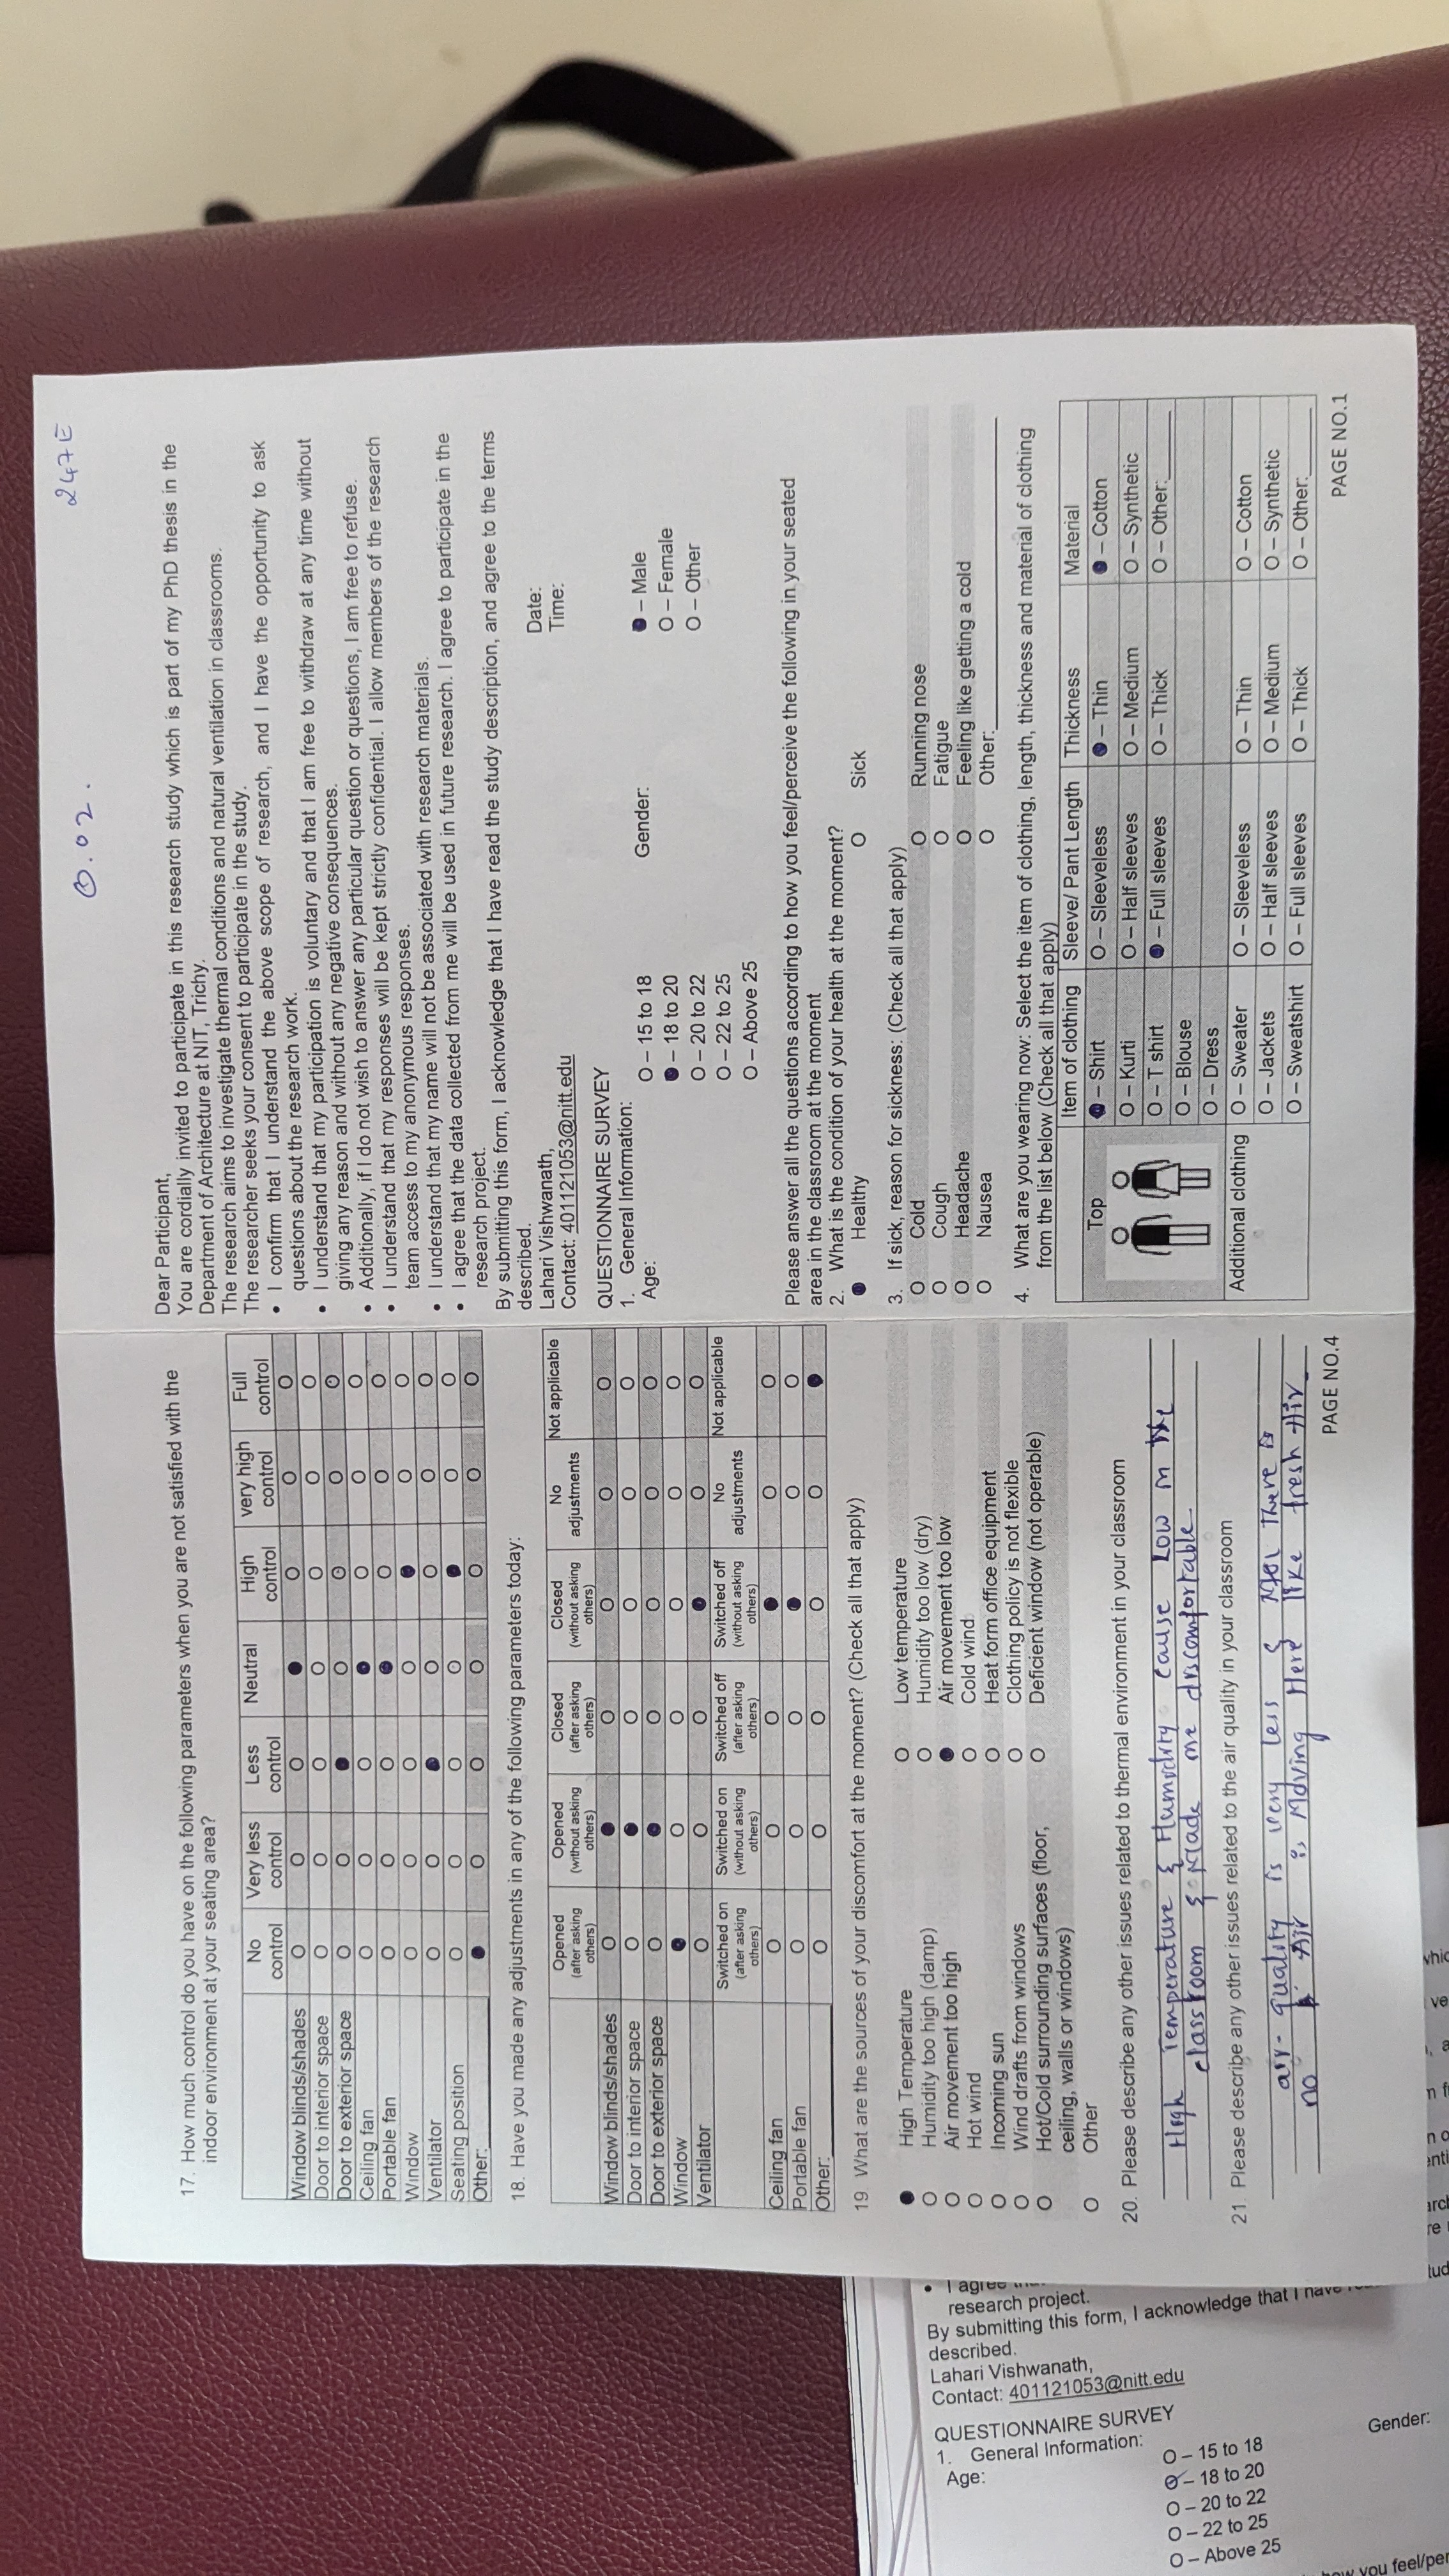 17. How much control do you have on the following parameters when you are not satisfied with the
indoor environment at your seating area?
No control Very less control Less control Neutral High control very high control Full control
Window blinds/shades O O O ● O O O
Door to interior space O O O O O O O
Door to exterior space O O ● O O O O
Ceiling fan O O O ● O O O
Portable fan O O O ● O O O
Window O O O O ● O O
Ventilator O O ● O O O O
Seating position O O O O ● O O
Other: ● O O O O O O
18. Have you made any adjustments in any of the following parameters today:
Opened (after asking others) Opened (without asking others) Closed (after asking others) Closed (without asking others) No adjustments Not applicable
Window blinds/shades O ● O O O O
Door to interior space O ● O O O O
Door to exterior space O ● O O O O
Window ● O O O O O
Ventilator O O O ● O O
Switched on (after asking others) Switched on (without asking others) Switched off (after asking others) Switched off (without asking others) No adjustments Not applicable
Ceiling fan O O O ● O O
Portable fan O O O ● O O
Other: O O O O O ●
19 What are the sources of your discomfort at the moment? (Check all that apply)
● High Temperature O Low temperature
O Humidity too high (damp) O Humidity too low (dry)
O Air movement too high ● Air movement too low
O Hot wind O Cold wind
O Incoming sun O Heat form office equipment
O Wind drafts from windows O Clothing policy is not flexible
O Hot/Cold surrounding surfaces (floor, O Deficient window (not operable)
ceiling, walls or windows)
O Other
20. Please describe any other issues related to thermal environment in your classroom
High Temperature & Humidity cause Low in the
classroom & Made me discomfortable
21. Please describe any other issues related to the air quality in your classroom
air- quality is very less & there is
no Air is Moving Here like fresh Air
PAGE NO.4
0.02.
247E
Dear Participant,
You are cordially invited to participate in this research study which is part of my PhD thesis in the
Department of Architecture at NIT, Trichy.
The research aims to investigate thermal conditions and natural ventilation in classrooms.
The researcher seeks your consent to participate in the study.
• I confirm that I understand the above scope of research, and I have the opportunity to ask
questions about the research work.
• I understand that my participation is voluntary and that I am free to withdraw at any time without
giving any reason and without any negative consequences.
• Additionally, if I do not wish to answer any particular question or questions, I am free to refuse.
• I understand that my responses will be kept strictly confidential. I allow members of the research
team access to my anonymous responses.
• I understand that my name will not be associated with research materials.
• I agree that the data collected from me will be used in future research. I agree to participate in the
research project.
By submitting this form, I acknowledge that I have read the study description, and agree to the terms
described.
Lahari Vishwanath,
Contact: 401121053@nitt.edu
Date:
Time:
QUESTIONNAIRE SURVEY
1. General Information:
Age: O – 15 to 18 Gender: ● – Male
● – 18 to 20 O – Female
O – 20 to 22 O – Other
O – 22 to 25
O – Above 25
Please answer all the questions according to how you feel/perceive the following in your seated
area in the classroom at the moment
2. What is the condition of your health at the moment?
● Healthy O Sick
3. If sick, reason for sickness: (Check all that apply)
O Cold O Running nose
O Cough O Fatigue
O Headache O Feeling like getting a cold
O Nausea O Other:
4. What are you wearing now: Select the item of clothing, length, thickness and material of clothing
from the list below (Check all that apply)
Item of clothing Sleeve/ Pant Length Thickness Material
Top ● – Shirt O – Sleeveless ● – Thin ● – Cotton
O – Kurti O – Half sleeves O – Medium O – Synthetic
O – T shirt ● – Full sleeves O – Thick O – Other:
O – Blouse
O – Dress
Additional clothing O – Sweater O – Sleeveless O – Thin O – Cotton
O – Jackets O – Half sleeves O – Medium O – Synthetic
O – Sweatshirt O – Full sleeves O – Thick O – Other:
PAGE NO.1
• I agree
research project.
By submitting this form, I acknowledge that I have
described.
Lahari Vishwanath,
Contact: 401121053@nitt.edu
QUESTIONNAIRE SURVEY
1. General Information:
Age: O – 15 to 18 Gender:
O – 18 to 20
O – 20 to 22
O – 22 to 25
O – Above 25